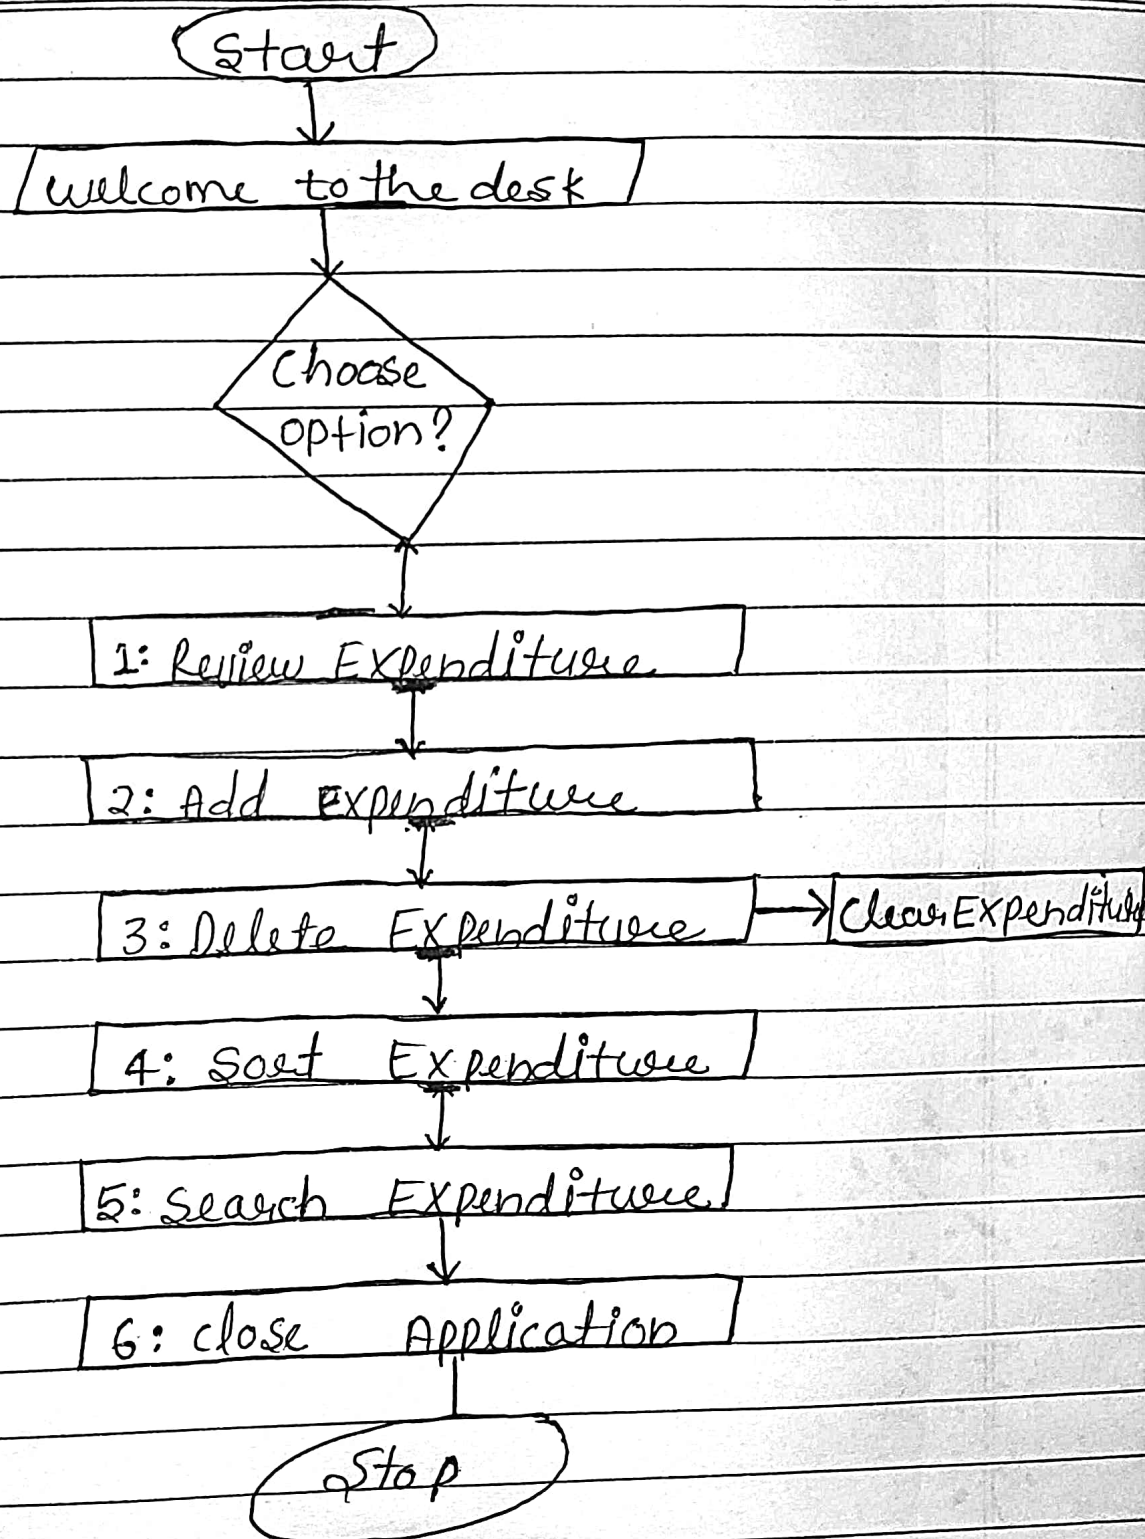 Start
Welcome to the desk
Choose
option?
1: Review Expenditure
2: Add Expenditure
3: Delete Expenditure
Clear Expenditure
4: Sort Expenditure
5: Search Expenditure
6: Close Application
Stop